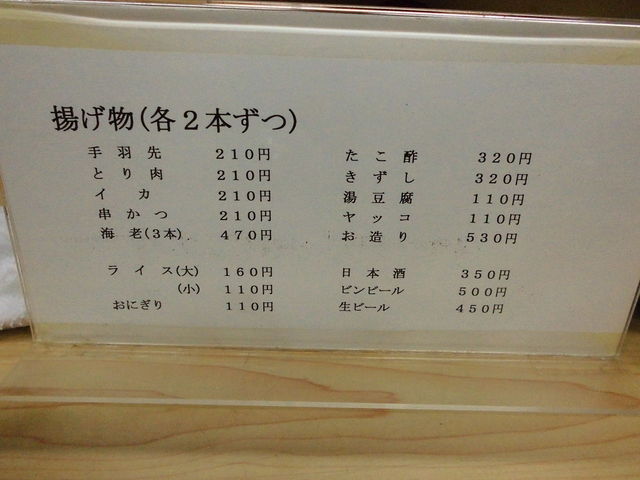 揚げ物(各２本ずつ)
手羽先 ２１０円
とり肉 ２１０円
イカ ２１０円
串かつ ２１０円
海老(３本) ４７０円
ライス(大) １６０円
(小) １１０円
おにぎり １１０円
たこ酢 ３２０円
きずし ３２０円
湯豆腐 １１０円
ヤッコ １１０円
お造り ５３０円
日本酒 ３５０円
ビンビール ５００円
生ビール ４５０円